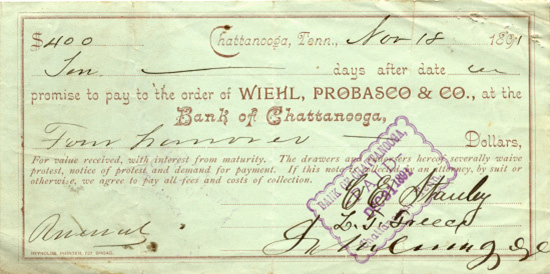 $400 Chattanooga, Tenn., Nov 18 1891
Ten days after date we
promise to pay to the order of WIEHL, PROBASCO & CO., at the
Bank of Chattanooga,
Four hundred Dollars,
For value received, with interest from maturity. The drawers and endorsers hereon severally waive
protest, notice of protest and demand for payment. If this note is collected by an attorney, by suit or
otherwise, we agree to pay all fees and costs of collection.
BANK OF CHATTANOOGA,
PAID
C. E. Stanley
Renewal
REYNOLDS, PRINTER, 727 BROAD.